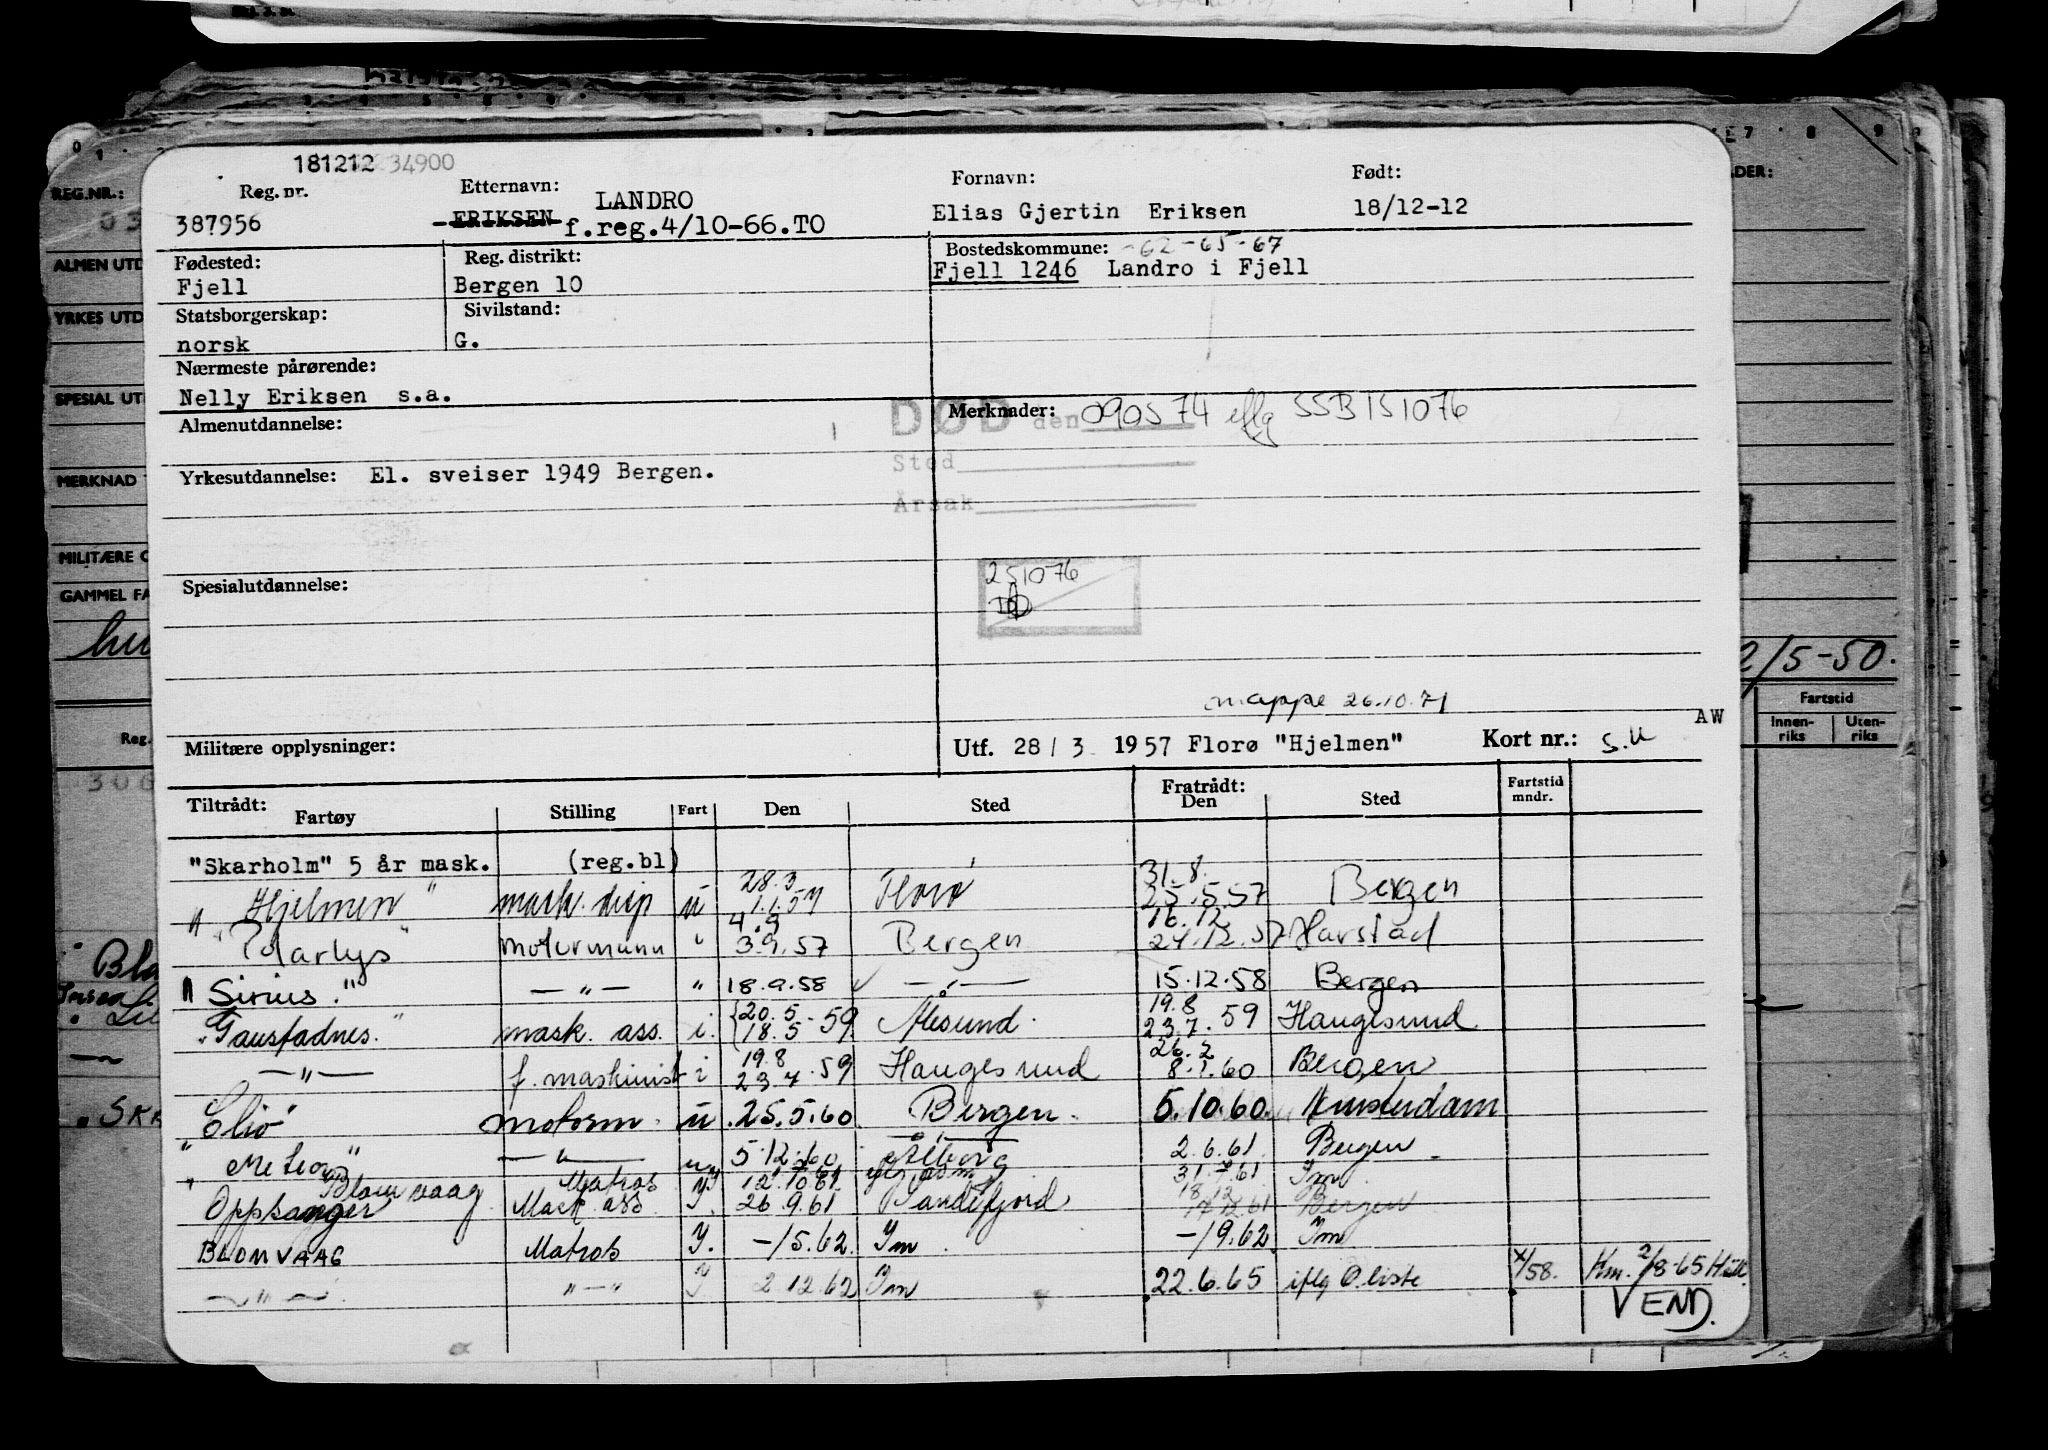 181212 34900
Reg. nr. Etternavn: Fornavn: Født:
387956 ERIKSEN LANDRO Elias Gjertin Eriksen 18/12-12
f.reg.4/10-66.TO
Fødested: Reg. distrikt: Bostedskommune: -62-65-67
Fjell Bergen 10 Fjell 1246 Landro i Fjell
Statsborgerskap: Sivilstand:
norsk G.
Nærmeste pårørende:
Nelly Eriksen s.a.
Almenutdannelse: DØD den Merknader: 090574 iflg SSB 151076
Sted
Yrkesutdannelse: El. sveiser 1949 Bergen.
Årsak
Spesialutdannelse: 251076
mappe 26.10.71
AW
Militære opplysninger: Utf. 28/3 1957 Florø "Hjelmen" Kort nr.: S.U
Tiltrådt: Fratrådt: Fartstid
Fartøy Stilling Fart Den Sted Den Sted mndr.
"Skarholm" 5 år mask. (reg.bl)
"Hjelmen" mask. disp u 28.3 1.1.57 Florø 31.8. 25.5.57 Bergen
"Polarlys" motormann " 4.9 3.9.57 Bergen 16.12 24.12.57 Harstad
"Sirius." — " — " 18.9.58 — " — 15.12.58 Bergen
"Gaustadnes." mask. ass. i. 20.5 18.5.59 Ålesund. 19.8 23.7.59 Haugesund
— " — f. maskinist i 19.8 23.7.59 Haugesund 26.2 8.1.60 Bergen
"Clio" motorm. u 25.5.60 Bergen. 5.10.60 Amsterdam
"Meteor" — " — u 5.12.60 Ålborg 2.6.61 Bergen
Blomvaag Matros Y 12.10.61 31.7.61 Ym
Oppsanger Mask. ass Y. 26.9.61 Sandefjord 18.12 17.12.61 Bergen
BLOMVAAG Matros Y. -/5.62. Ym -/9.62. Ym
— " — " — " Y 2.12.62 Ym 22.6.65 iflg O.liste x/58. Hm. 2/8-65 Hill
VEND.
REG.NR.:
03
ALMEN UTD
YRKES UTD
SPESIAL UT
MERKNAD
MILITÆRE O
GAMMEL FA
Reg.
306
2/5-50.
Fartstid
Innen-riks Uten-riks